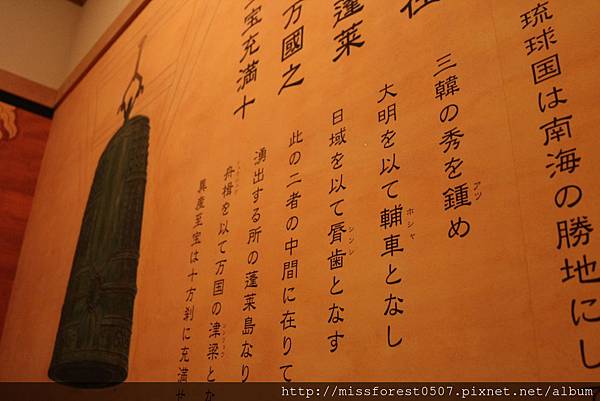 琉球国は南海の勝地にし
三韓の秀を鍾め
アツ
大明を以て輔車となし
ホシャ
日域を以て唇歯となす
シンシ
此の二者の中間に在りて
湧出する所の蓬莱島なり
舟楫を以て万国の津梁とな
異産至宝は十方刹に充満せ
蓬萊
万國之
宝充満十
http://missforest0507.pixnet.net/album